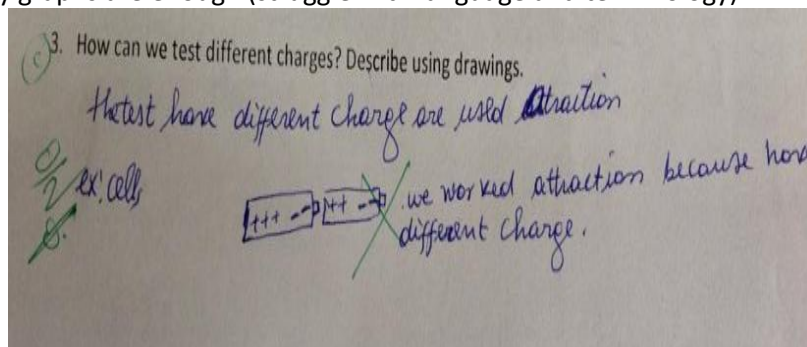 3. How can we test different charges? Describe using drawings.
(c)
thetest have different charge are used attraction
0/2
ex: cells
+++ -- ++ --
we worked attraction because have
different charge.